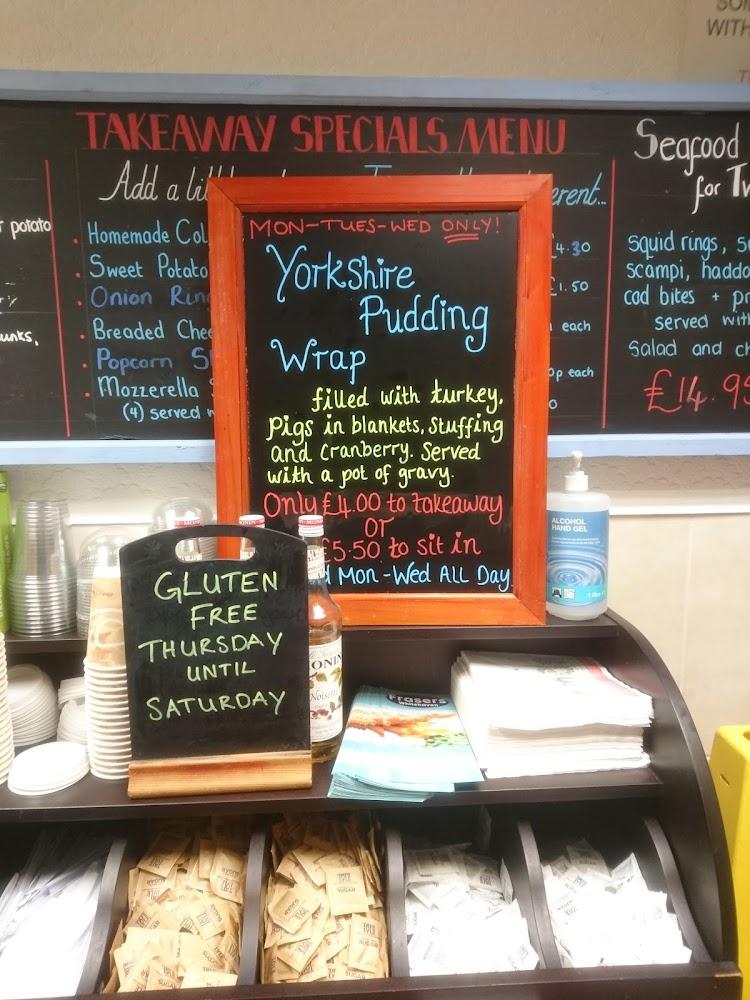 SOM
WITH
TAKEAWAY SPECIALS MENU
Add a litt
erent...
Homemade Col
£4.30
Sweet Potato
£1.50
Onion Rin
Breaded Chee
each
Popcorn
p each
Mozzerella
(4) served
r potato
unks,
Seafood
for Tw
Squid rings, s
scampi, haddo
cod bites + pr
served with
Salad and ch
£14.95
MON-TUES-WED ONLY!
Yorkshire
Pudding
Wrap
filled with turkey,
Pigs in blankets, Stuffing
and cranberry. Served
with a pot of gravy.
Only £4.00 to takeaway
or
£5.50 to sit in
d Mon-Wed ALL Day
ALCOHOL
HAND GEL
GLUTEN
FREE
THURSDAY
UNTIL
SATURDAY
ONIN
Noisette
Frasers
Whitehaven
SUGAR